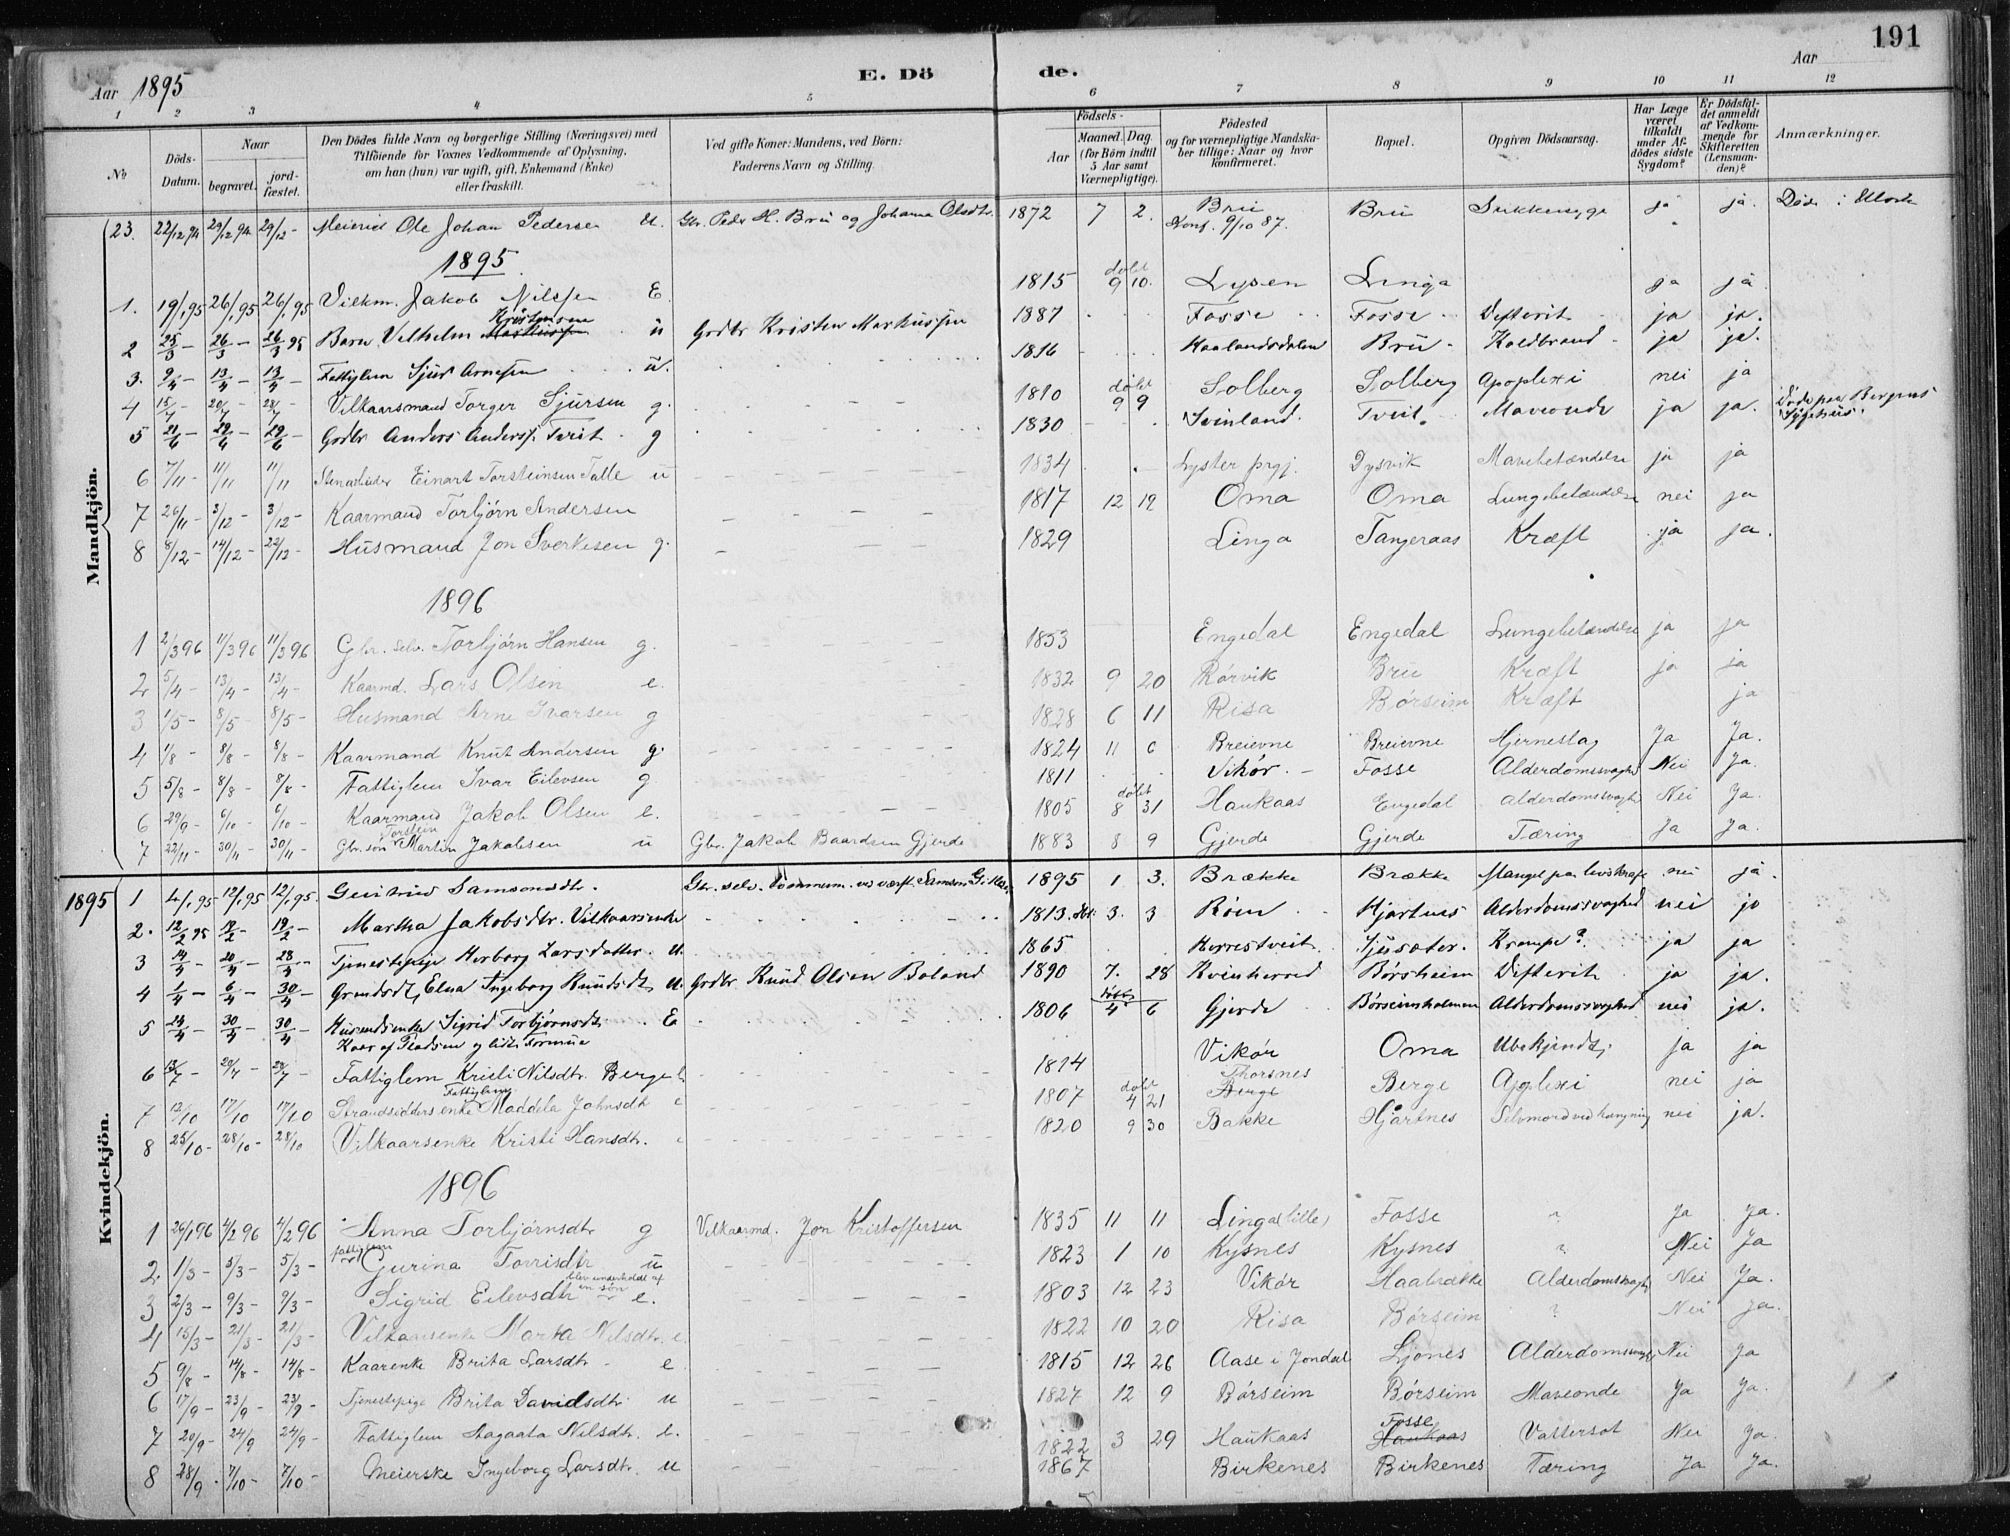 191
Aar 1895 E. Dö de. Aar
1 2 3 4 5 6 7 8 9 10 11 12
№ Döds-Datum. Naar begravet. jord-fæstet. Den Dödes fulde Navn og borgerlige Stilling (Næringsvei) med Tilföiende for Voxnes Vedkommende af Oplysning, om han (hun) var ugift, gift, Enkemand (Enke) eller fraskilt. Ved gifte Koner: Mandens, ved Börn: Faderens Navn og Stilling. Födsels- Aar Maaned. Dag. (for Börn indtil 5 Aar samt Værnepligtige). Födested og for værnepligtige Mandskaber tillige: Naar og hvor konfirmeret. Bopæl. Opgiven Dödsaarsag. Har Læge været tilkaldt under Afdödes sidste Sygdom? Er Dödsfaldet anmeldt af Vedkommende for Skifteretten (Lensmanden)? Anmærkninger.
Mandkjön.
23. 22/12 94 29/12 94 29/12 - Meierist Ole Johan Pedersen u. Gbr. Peder H. Bru og Johanna Olsdtr. 1872 7 2. Bru Konf. 9/10 87. Bru Sukkersyge ja ja. Döde i
1895
1. 19/1 95 26/1 95 26/1 95 Vilkm. Jakob Nilssen E. 1815 döbt 9 10. Lysen Linga ja ja.
2 25/3 - 26/3 - 26/3 95 Barn Vilhelm Markussen Kristensen u Grdbr Kristen Markussen 1887 Fosse Fosse Difterit ja ja.
3. 9/4 - 13/4 - 13/4 - Fattiglem Sjur Arnesen u. 1816 Haalandsdalen Bru Koldbrand ja ja.
4 15/7 - 20/7 - 28/7 - Vilkaarsmand Torger Sjursen g. 1810 döbt 9 9 Solberg Solberg Apoplexi nei ja
5 21/6 - 29/6 - 29/6 - Grdbr Anders Anders. Tveit g 1830 Svinland Tveit Mavesaar ja ja. Döde paa Bergens Sygehus.
6 7/11 - 11/11 11/11 Stenarbeider Einart Torsteinsen Talle u 1834 Lyster prgj. Dysvik Mavebetændelse ja ja
7 26/11 - 3/12 - 3/12 - Kaarmand Torbjørn Andersen 1817 12 19 Oma Oma Lungebetændelse nei ja
8 8/12 - 14/12 - 22/12 - Husmand Jon Sverkesen g. 1829 Linga Tangeraas Kræft ja ja.
1896
1 2/3 96 11/3 96 11/3 96 Gbr. selv. Torbjørn Hansen g. 1853 Engedal Engedal Lungebetændelse ja ja
2 5/4 - 13/4 - 13/4 - Kaarmd. Lars Olsen e. 1832 9 20 Rörvik Bru Kræft ja ja
3 1/5 - 8/5 - 8/5 - Husmand Arne Ivarsen g 1828 6 11 Risa Börseim Kræft ja
4 1/8 - 8/8 - 8/8 - Kaarmand Knut Andersen g. 1824 11 6 Breievne Breievne Hjerneslag Ja Ja.
5 5/8 - 8/8 - 8/8 - Fattiglem Ivar Eilevsen g. 1811 Vikör. Fosse Alderdomssvaghed Nei Ja.
6 29/9 - 6/10 - 6/10 - Kaarmand Jakob Olsen e. 1805 döbt 8 31 Haukaas Engedal Alderdomssvaghed Nei Ja
7 22/11 - 30/11 - 30/11 - Gbr. sön Torstein Martin Jakobsen u Gbr. Jakob Baardsen Gjerde 1883 8 9 Gjerde Gjerde Tæring Ja Ja.
Kvindekjön.
1895 1 4/1 95 12/1 95 12/1 95. Samsonsdtr. 1895 1 3. Brække Brække Mangel paa livskraft nei ja.
2. 12/2 95 19/2 - 19/2 - Martha Jakobsdtr. Vilkaarsenke 1813. 3. 3 Röen Hjartnes Alderdomssvaghed nei ja
3 14/4 - 20/4 - 28/4 - Tjenestepige Herborg Larsdatter. u. 1865 Herrestveit Sjusæter. Krampe? ja ja
4 1/4 - 6/4 - 30/4 - Elna Ingeborg Knudsdtr u Grdbr. Knud Olsen Boland 1890 7. 28 Kvinherred Börsheim Difterit ja ja.
5 24/4 - 30/4 - 30/4 Husmdsenke Sigrid Torbjörnsdtr E Kaar af Pladsen og lidt formue 1806 döbt 4 6 Gjerde Börseimsholmen Alderdomssvaghed nei ja.
6 13/7 - 20/7 - 28/7 - Fattiglem Kristi Nilsdtr. Berge 1814 Vikör Oma Ubekjendt ja ja
7 12/10 17/10 17/10 Strandsidders enke Fattiglem Maddela Johnsdtr e 1807 döbt 4 21 Thorsnes Berge Berge Applexi nei ja
8 25/10 - 28/10 - 28/10 Vilkaarsenke Kristi Hansdtr. 1820 9 30 Bakke Hjartnes Selvmord ved hængning nei ja.
1896
1 26/1 96 4/2 96 4/2 96 Anna Torbjörnsdtr g Vilkaarmd. Jon Kristoffersen 1835 11 11 Linga (lille) Fosse Ja Ja.
2. 1/3 - 5/3 - 5/3 - fattiglem Gurina Torrisdtr u 1823 1 10 Kysnes Kysnes ? Nei Ja
3 2/3 - 9/3 - 9/3 - Sigrid Eilevsdtr blev underholdt af en sön e. 1803 12 23 Vikör Haabrække Alderdomssvaghed Nei Ja.
4 15/3 - 21/3 - 21/3 - Vilkaarsenke Marta Nilsdtr. e. 1822 10 20 Risa Börseim ? Nei Ja.
5 9/8 - 14/8 - 14/8 - Kaarenke Brita Larsdtr e 1815 12 26 Aase i Jondal Ljones Alderdomssvaghed Nei Ja
6 17/9 - 23/9 - 23/9 - Tjenestepige Brita Davidsdtr. u 1827 12 9 Börseim Börseim Maveonde Ja Ja.
7 20/9 - 24/9 24/9 - Fattiglem Aagaata Nilsdtr. e. 1822 3 29 Haukaas Fosse Haukaas Vattersot Nei Ja.
8 28/9 - 7/10 - 7/10 - Meierske Ingeborg Larsdtr. u 1867 Birkenes Birkenes Tæring Ja Ja.